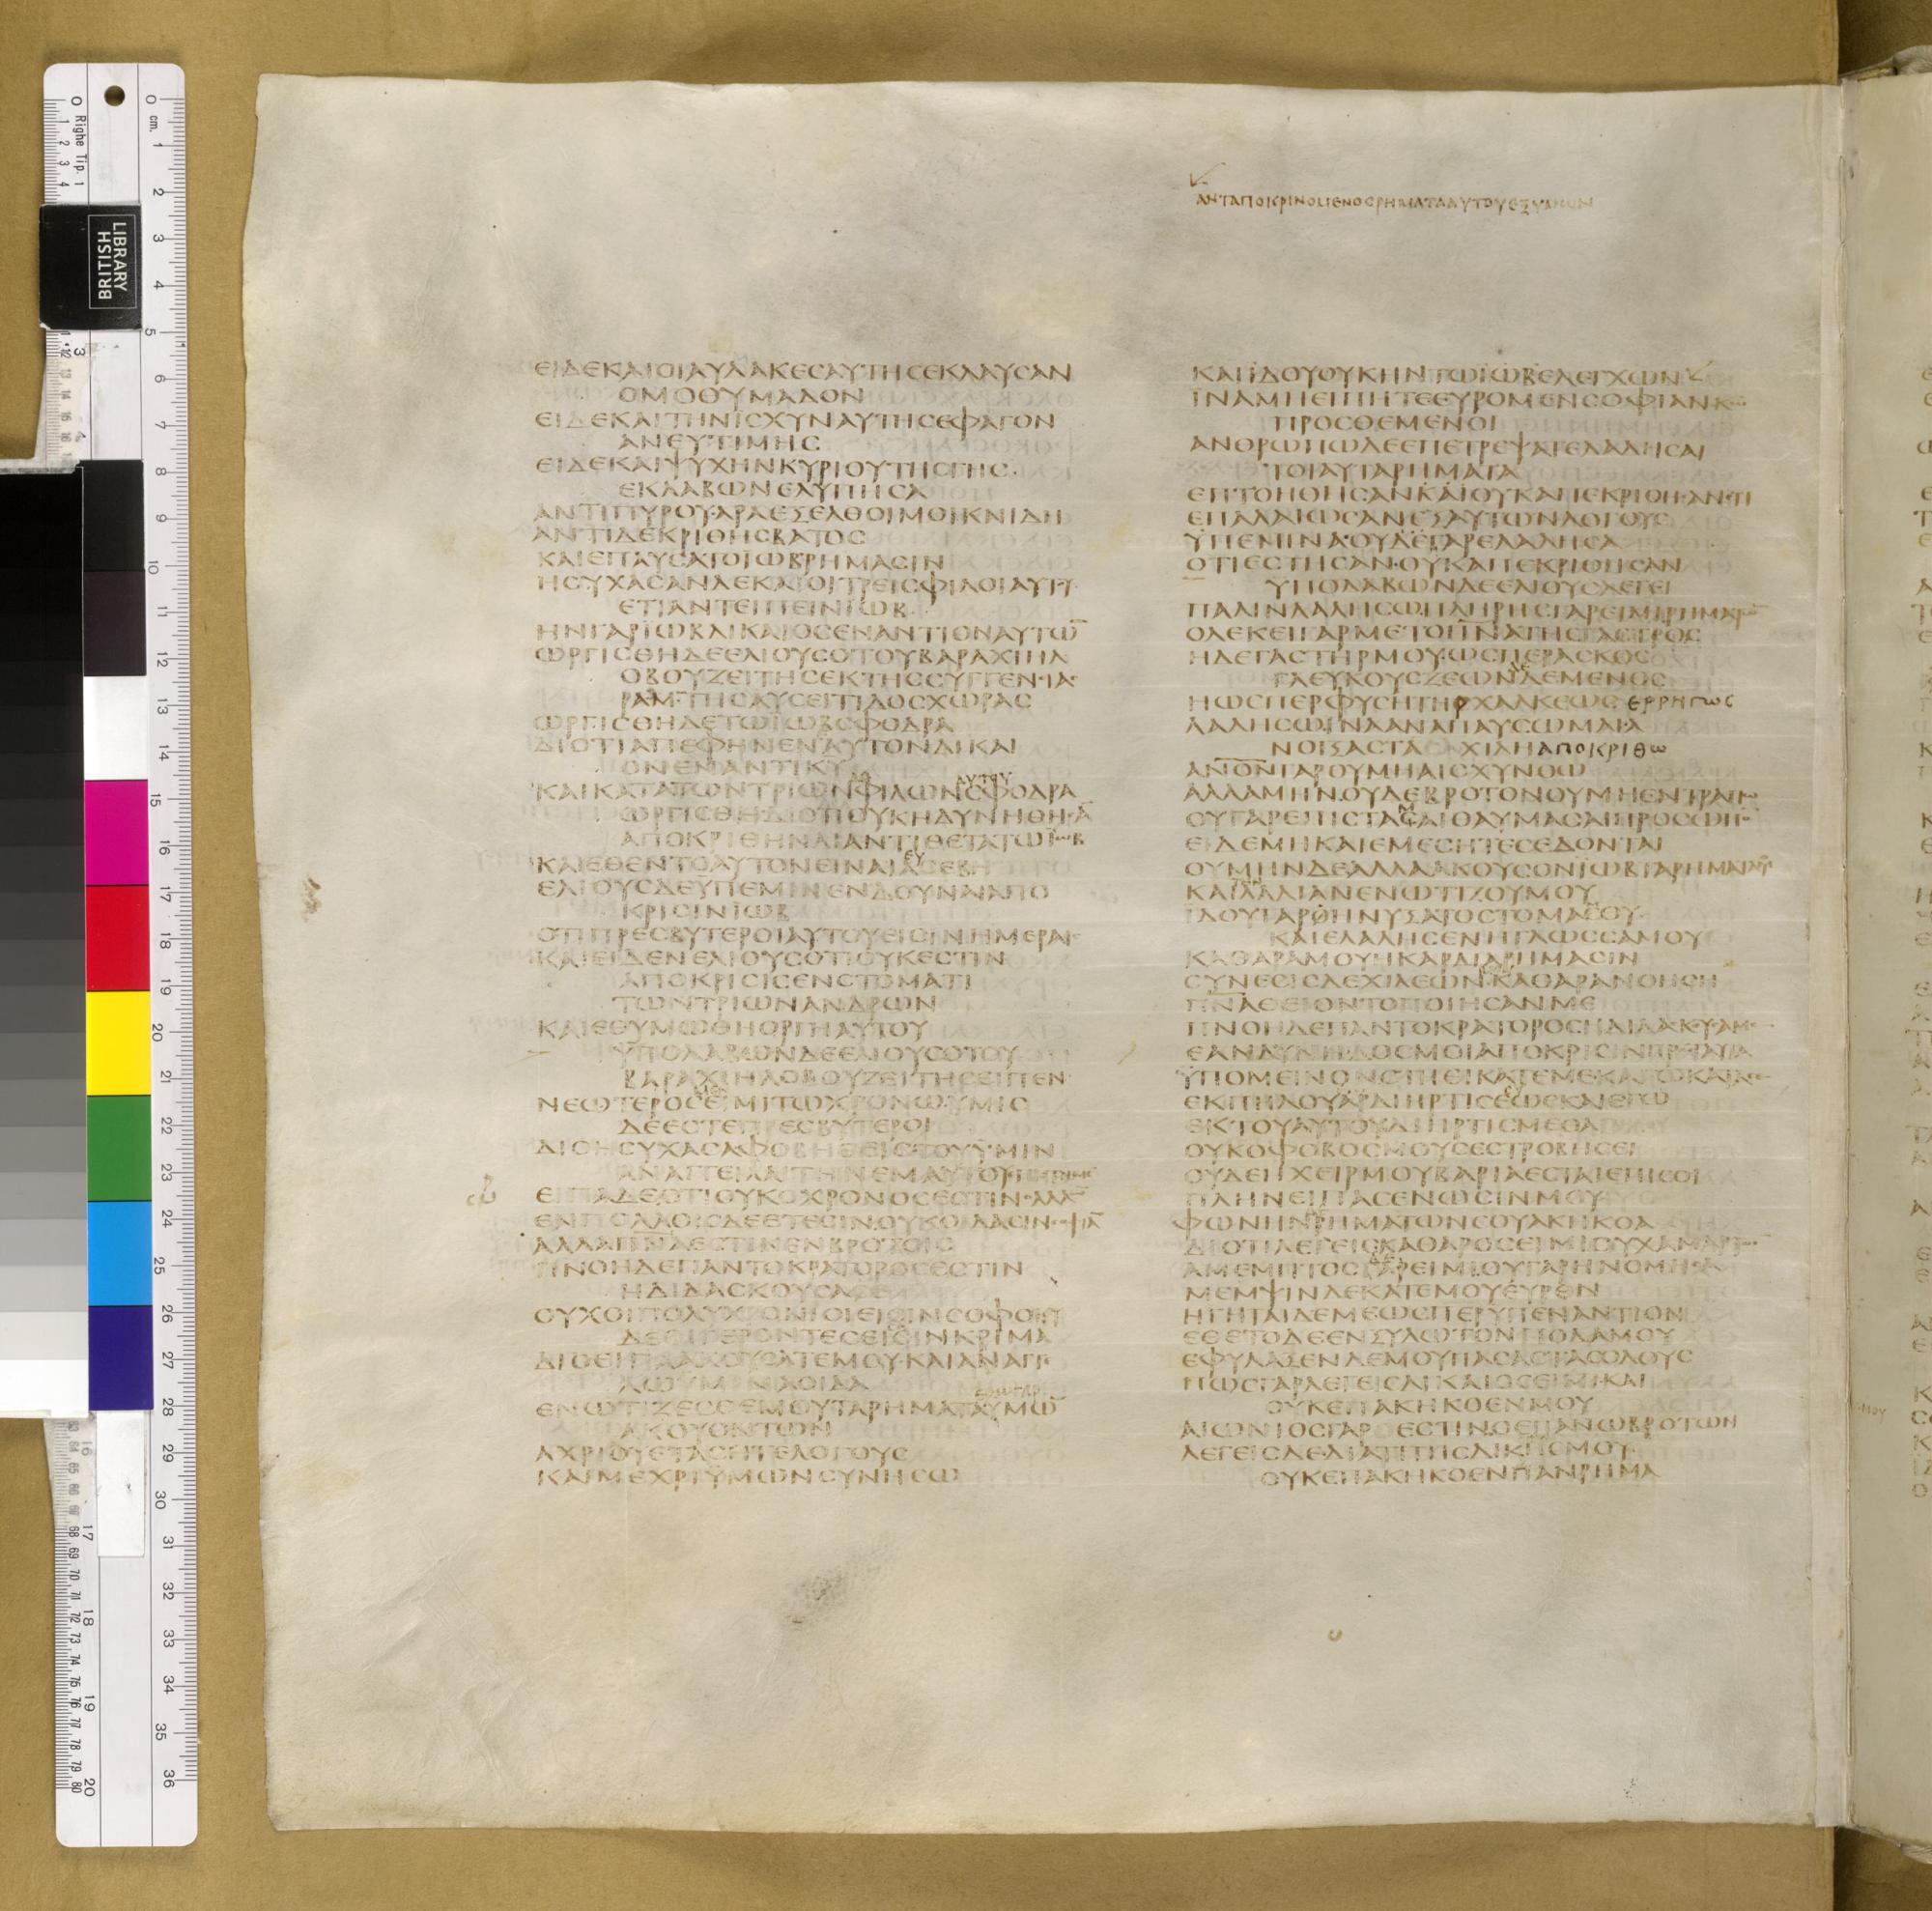 ΑΝΤΑΠΟΚΡΙΝΟΜΕΝΟΣΡΗΜΑΤΑΑΥΤΟΥΕΞΥΜΩΝ
ΕΙΔΕΚΑΙΟΙΑΥΛΑΚΕΣΑΥΤΗΣΕΚΛΑΥΣΑΝ
ΟΜΟΘΥΜΑΔΟΝ
ΕΙΔΕΚΑΙΤΗΝΙΣΧΥΝΑΥΤΗΣΕΦΑΓΟΝ
ΑΝΕΥΤΙΜΗΣ
ΕΙΔΕΚΑΙΨΥΧΗΝΚΥΡΙΟΥΤΗΣΓΗΣ
ΕΚΛΑΒΩΝΕΛΥΠΗΣΑ
ΑΝΤΙΠΥΡΟΥΑΡΑΕΞΕΛΘΟΙΜΟΙΚΝΙΔΗ
ΑΝΤΙΔΕΚΡΙΘΗΣΒΑΤΟΣ
ΚΑΙΕΠΑΥΣΑΤΟΪΩΒΡΗΜΑΣΙΝ
ΗΣΥΧΑΣΑΝΔΕΚΑΙΟΙΤΡΕΙΣΦΙΛΟΙΑΥΤΥ
ΕΤΙΑΝΤΕΙΠΕΙΝΪΩΒ
ΗΝΓΑΡΪΩΒΔΙΚΑΙΟΣΕΝΑΝΤΙΟΝΑΥΤΩ̅
ΩΡΓΙΣΘΗΔΕΕΛΙΟΥΣΟΤΟΥΒΑΡΑΧΙΗΛ
ΟΒΟΥΖΕΙΤΗΣΕΚΤΗΣΣΥΓΓΕΝΙΑΣ
ΡΑΜΤΗΣΑΥΣΕΙΤΙΔΟΣΧΩΡΑΣ
ΩΡΓΙΣΘΗΔΕΤΩΪΩΒΣΦΟΔΡΑ
ΔΙΟΤΙΑΠΕΦΗΝΕΝΑΥΤΟΝΔΙΚΑΙ
ΟΝΕΝΑΝΤΙΚΥ̅
ΚΑΙΚΑΤΑΤΩΝΤΡΙΩΝΦΙΛΩΝΑΥΤΟΥΣΦΟΔΡΑ
ΩΡΓΙΣΘΗΔΙΟΤΙΟΥΚΗΔΥΝΗΘΗΣΑ̅
ΑΠΟΚΡΙΘΗΝΑΙΑΝΤΙΘΕΤΑΤΩΪΩΒ
ΚΑΙΕΘΕΝΤΟΑΥΤΟΝΕΙΝΑΙΕΥΣΕΒΗ
ΕΛΙΟΥΣΔΕΫΠΕΜΙΝΕΝΔΟΥΝΑΙΑΠΟ
ΚΡΙΣΙΝΪΩΒ
ΟΤΙΠΡΕΣΒΥΤΕΡΟΙΑΥΤΟΥΕΙΣΙΝΗΜΕΡΑΙΣ
ΚΑΙΕΙΔΕΝΕΛΙΟΥΣΟΤΙΟΥΚΕΣΤΙΝ
ΑΠΟΚΡΙΣΙΣΕΝΣΤΟΜΑΤΙ
ΤΩΝΤΡΙΩΝΑΝΔΡΩΝ
ΚΑΙΕΘΥΜΩΘΗΟΡΓΗΑΥΤΟΥ
ΫΠΟΛΑΒΩΝΔΕΕΛΙΟΥΣΟΤΟΥ
ΒΑΡΑΧΙΗΛΟΒΟΥΖΕΙΤΗΣΕΙΠΕΝ
ΝΕΩΤΕΡΟΣΕΙΜΙΤΩΧΡΟΝΩΥΜΙΣ
ΔΕΕΣΤΕΠΡΕΣΒΥΤΕΡΟΙ
ΔΙΟΗΣΥΧΑΣΑΦΟΒΗΘΕΙΣΤΟΥΫΜΙΝ
ΑΝΑΓΓΕΙΛΑΙΤΗΝΕΜΑΥΤΟΥ
ΕΙΠΑΔΕΟΤΙΟΥΚΟΧΡΟΝΟΣΕΣΤΙΝ
ΕΝΠΟΛΛΟΙΣΔΕΕΤΕΣΙΝΟΥΚΟΙΔΑΣΙΝ
ΑΛΛΑΠΝ̅ΑΕΣΤΙΝΕΝΒΡΟΤΟΙΣ
ΠΝΟΗΔΕΠΑΝΤΟΚΡΑΤΟΡΟΣΕΣΤΙΝ
ΗΔΙΔΑΣΚΟΥΣΑ
ΟΥΧΟΙΠΟΛΥΧΡΟΝΙΟΙΕΙΣΙΝΣΟΦΟΙ
ΔΕΟΙΓΕΡΟΝΤΕΣΕΙΣΙΝΚΡΙΜΑ
ΔΙΟΕΙΠΑΑΚΟΥΣΑΤΕΜΟΥΚΑΙΑΝΑΓΓΕ
ΛΩΥΜΙΝΑΟΙΔΑ
ΕΝΩΤΙΖΕΣΘΕΜΟΥΤΑΡΗΜΑΤΑΥΜΩ̅
ΑΚΟΥΟΝΤΩΝ
ΑΧΡΙΟΥΕΤΑΣΗΤΕΛΟΓΟΥΣ
ΚΑΙΜΕΧΡΙΫΜΩΝΣΥΝΗΣΩ
ΚΑΙΪΔΟΥΟΥΚΗΝΤΩΪΩΒΕΛΕΓΧΩΝ
ΪΝΑΜΗΕΙΠΗΤΕΕΥΡΟΜΕΝΣΟΦΙΑΝΚΩ
ΠΡΟΣΘΕΜΕΝΟΙ
ΑΝΘΡΩΠΩΔΕΕΠΕΤΡΕΨΑΤΕΛΑΛΗΣΑΙ
ΤΟΙΑΥΤΑΡΗΜΑΤΑ
ΕΠΤΟΗΘΗΣΑΝΚΑΙΟΥΚΑΠΕΚΡΙΘΗΣΑΝΕΤΙ
ΕΠΑΛΑΙΩΣΑΝΕΞΑΥΤΩΝΛΟΓΟΥΣ
ΫΠΕΜΙΝΑΟΥΔΕΓΑΡΕΛΑΛΗΣΑ
ΟΤΙΕΣΤΗΣΑΝΟΥΚΑΠΕΚΡΙΘΗΣΑΝ
ΥΠΟΛΑΒΩΝΔΕΕΛΙΟΥΣΛΕΓΕΙ
ΠΑΛΙΝΛΑΛΗΣΩΠΛΗΡΗΣΓΑΡΕΙΜΙΡΗΜΑΤΩ̅
ΟΛΕΚΕΙΓΑΡΜΕΤΟΠΝ̅ΑΤΗΣΓΑΣΤΡΟΣ
ΗΔΕΓΑΣΤΗΡΜΟΥΩΣΠΕΡΑΣΚΟΣ
ΓΛΕΥΚΟΥΣΖΕΩΝΔΕΔΕΜΕΝΟΣ
ΗΩΣΠΕΡΦΥΣΗΤΗΡΧΑΛΚΕΩΣΕΡΡΗΓΩΣ
ΛΑΛΗΣΩΙΝΑΑΝΑΠΑΥΣΩΜΑΙΑ
ΝΟΙΞΑΣΤΑΧΙΛΗΑΠΟΚΡΙΘΩ
ΑΝ̅ΟΝΓΑΡΟΥΜΗΑΙΣΧΥΝΘΩ
ΑΛΛΑΜΗΝΟΥΔΕΒΡΟΤΟΝΟΥΜΗΕΝΤΡΑΠΩ
ΟΥΓΑΡΕΠΙΣΤΑΜΑΙΘΑΥΜΑΣΑΙΠΡΟΣΩΠ
ΕΙΔΕΜΗΚΑΙΕΜΕΣΗΤΕΣΕΔΟΝΤΑΙ
ΟΥΜΗΝΔΕΑΛΛΑΑΚΟΥΣΟΝΪΩΒΤΑΡΗΜΑΤΑΜΟΥ
ΚΑΙΛΑΛΙΑΝΕΝΩΤΙΖΟΥΜΟΥ
ΪΔΟΥΓΑΡΗΝΥΞΑΤΟΣΤΟΜΑΜΟΥ
ΚΑΙΕΛΑΛΗΣΕΝΗΓΛΩΣΣΑΜΟΥ
ΚΑΘΑΡΑΜΟΥΗΚΑΡΔΙΑΡΗΜΑΣΙΝ
ΣΥΝΕΣΙΣΔΕΧΙΛΕΩΝΚΑΘΑΡΑΝΟΗΣΗ
ΠΝ̅ΑΘΕΙΟΝΤΟΠΟΙΗΣΑΝΜΕ
ΠΝΟΗΔΕΠΑΝΤΟΚΡΑΤΟΡΟΣΗΔΙΔΑΣΚΟΥΣΑΜΕ
ΕΑΝΔΥΝΗΔΟΣΜΟΙΑΠΟΚΡΙΣΙΝΠΡΟΣΤΑΥΤΑ
ΫΠΟΜΕΙΝΟΝΣΤΗΘΙΚΑΤΕΜΕΚΑΓΩΚΑΤΑΣΕ
ΕΚΠΗΛΟΥΔΙΗΡΤΙΣΕΩΣΚΑΙΕΓΩ
ΕΚΤΟΥΑΥΤΟΥΔΙΗΡΤΙΣΜΕΘΑ
ΟΥΚΟΦΟΒΟΣΜΟΥΣΕΣΤΡΟΒΗΣΕΙ
ΟΥΔΕΗΧΕΙΡΜΟΥΒΑΡΙΑΕΣΤΑΙΕΠΙΣΟΙ
ΠΛΗΝΕΙΠΑΣΕΝΩΣΙΝΜΟΥ
ΦΩΝΗΝΡΗΜΑΤΩΝΣΟΥΑΚΗΚΟΑ
ΔΙΟΤΙΛΕΓΕΙΣΚΑΘΑΡΟΣΕΙΜΙΟΥΧΑΜΑΡΤ
ΑΜΕΜΠΤΟΣΓΑΡΕΙΜΙΟΥΓΑΡΗΝΟΜΗΣΑ
ΜΕΜΨΙΝΔΕΚΑΤΕΜΟΥΕΥΡΕΝ
ΗΓΗΤΑΙΔΕΜΕΩΣΠΕΡΥΠΕΝΑΝΤΙΟΝ
ΕΘΕΤΟΔΕΕΝΞΥΛΩΤΟΝΠΟΔΑΜΟΥ
ΕΦΥΛΑΞΕΝΔΕΜΟΥΠΑΣΑΣΤΑΣΟΔΟΥΣ
ΠΩΣΓΑΡΛΕΓΕΙΣΔΙΚΑΙΟΣΕΙΜΙΚΑΙ
ΟΥΚΕΠΑΚΗΚΟΕΝΜΟΥ
ΑΙΩΝΙΟΣΓΑΡΕΣΤΙΝΟΕΠΑΝΩΒΡΟΤΩΝ
ΛΕΓΕΙΣΔΕΔΙΑΤΙΤΗΣΔΙΚΗΣΜΟΥ
ΟΥΚΕΠΑΚΗΚΟΕΝΠΑΝΡΗΜΑ
BRITISH
LIBRARY
Righe Tip. 1
cm.